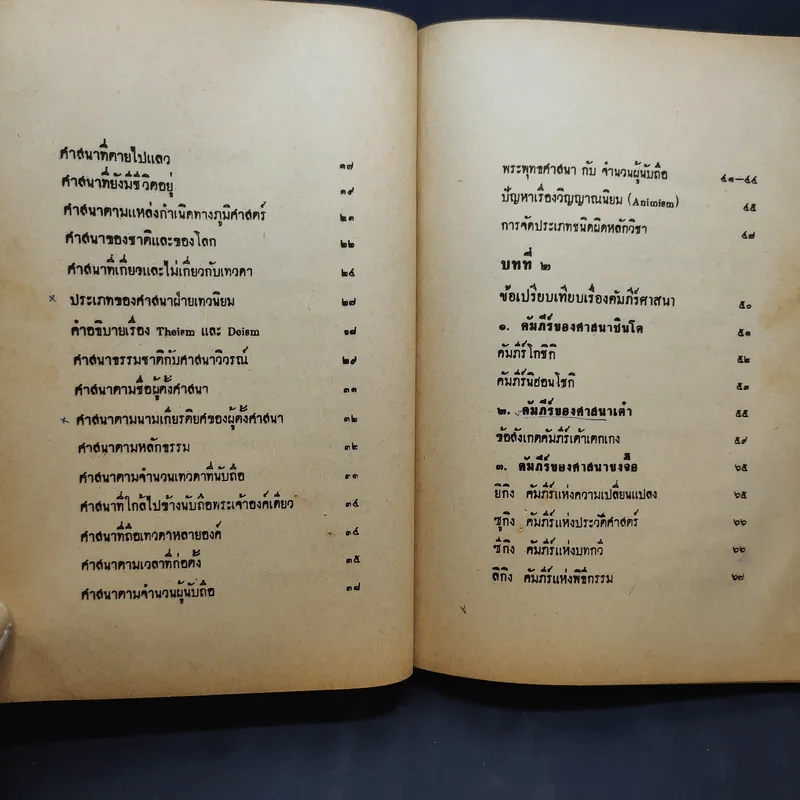 ศาสนาที่ตายไปแล้ว ๑๗
ศาสนาที่ยังมีชีวิตอยู่ ๑๙
ศาสนาตามแหล่งกำเนิดทางภูมิศาสตร์ ๒๑
ศาสนาของชาติและของโลก ๒๒
ศาสนาที่เกี่ยวและไม่เกี่ยวกับเทวดา ๒๔
ประเภทของศาสนาฝ่ายเทวนิยม ๒๗
คำอธิบายเรื่อง Theism และ Deism ๒๘
ศาสนาธรรมชาติกับศาสนาวิวรณ์ ๒๙
ศาสนาตามชื่อผู้ตั้งศาสนา ๓๑
ศาสนาตามนามเกียรติยศของผู้ตั้งศาสนา ๓๒
ศาสนาตามหลักธรรม ๓๒
ศาสนาตามจำนวนเทวดาที่นับถือ ๓๓
ศาสนาที่ใกล้ไปข้างนับถือพระเจ้าองค์เดียว ๓๔
ศาสนาที่ถือเทวดาหลายองค์ ๓๔
ศาสนาตามเวลาที่ก่อตั้ง ๓๕
ศาสนาตามจำนวนผู้นับถือ ๓๘
พระพุทธศาสนา กับ จำนวนผู้นับถือ ๔๑–๔๔
ปัญหาเรื่องวิญญาณนิยม (Animism) ๔๕
การจัดประเภทชนิดผิดหลักวิชา ๔๗
บทที่ ๒
ข้อเปรียบเทียบเรื่องคัมภีร์ศาสนา ๕๐
๑. คัมภีร์ของศาสนาชินโต ๕๑
คัมภีร์โกชิกิ ๕๒
คัมภีร์นิฮอนโชกิ ๕๓
๒. คัมภีร์ของศาสนาเต๋า ๕๕
ข้อสังเกตคัมภีร์เต๋าเตกเกง ๕๙
๓. คัมภีร์ของศาสนาขงจื๊อ ๖๕
ยิกิง คัมภีร์แห่งความเปลี่ยนแปลง ๖๕
ชูกิง คัมภีร์แห่งประวัติศาสตร์ ๖๖
ชีกิง คัมภีร์แห่งบทกวี ๖๖
ลิกิง คัมภีร์แห่งพิธีกรรม ๖๗